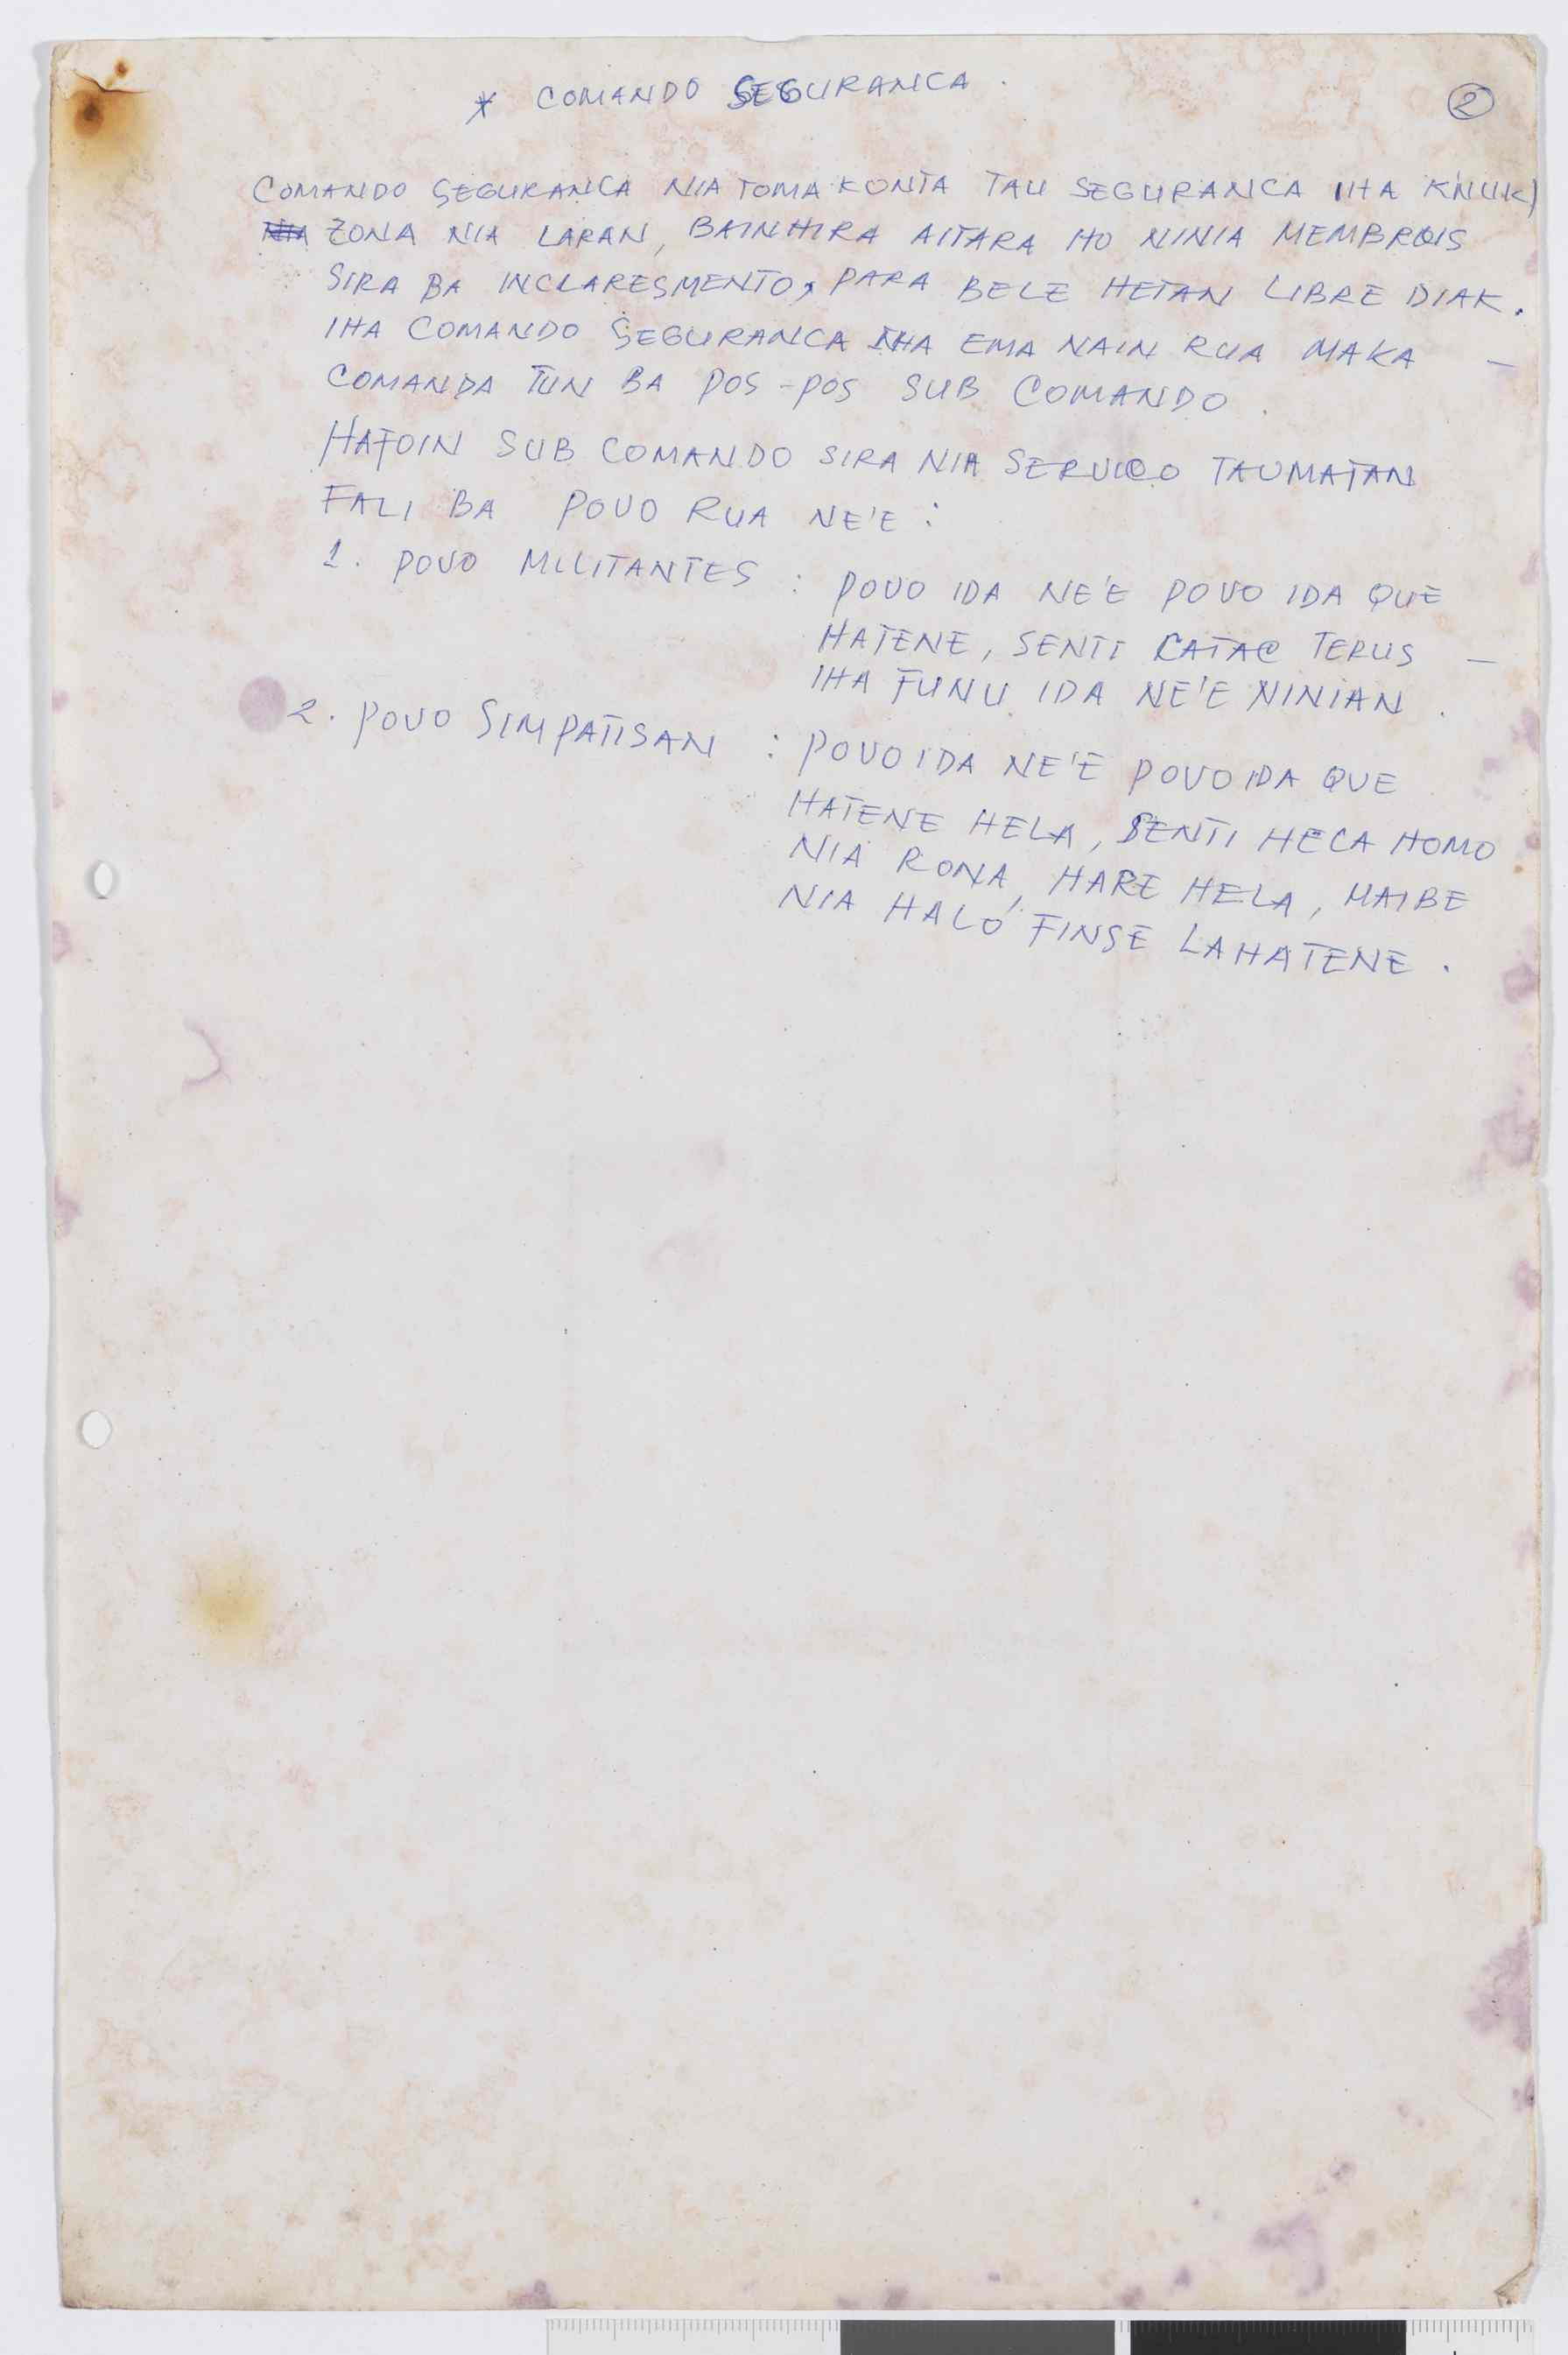 * COMANDO SEGURANCA .
2
COMANDO SEGURANCA NIA TOMA KONTA TAU SEGURANCA IHA KNUK)
NIA ZONA NIA LARAN, BAINHIRA AITARA HO NINIA MEMBROIS
SIRA BA INCLARESMENTO, PARA BELE HETAN LIBRE DIAK.
IHA COMANDO SEGURANCA IHA EMA NAIN RUA MAKA –
COMANDA TUN BA POS-POS SUB COMANDO .
HAFOIN SUB COMANDO SIRA NIA SERVICO TAUMATAN
FALI BA POVO RUA NE'E :
1. POVO MILITANTES : POVO IDA NE'E POVO IDA QUE
HATENE, SENTI CATAC TERUS –
IHA FUNU IDA NE'E NINIAN .
2. POVO SIMPATISAN : POVO IDA NE'E POVO IDA QUE
HATENE HELA, SENTI HELA HOMO
NIA RONA, HARE HELA, MAIBE
NIA HALO FINSE LAHATENE .